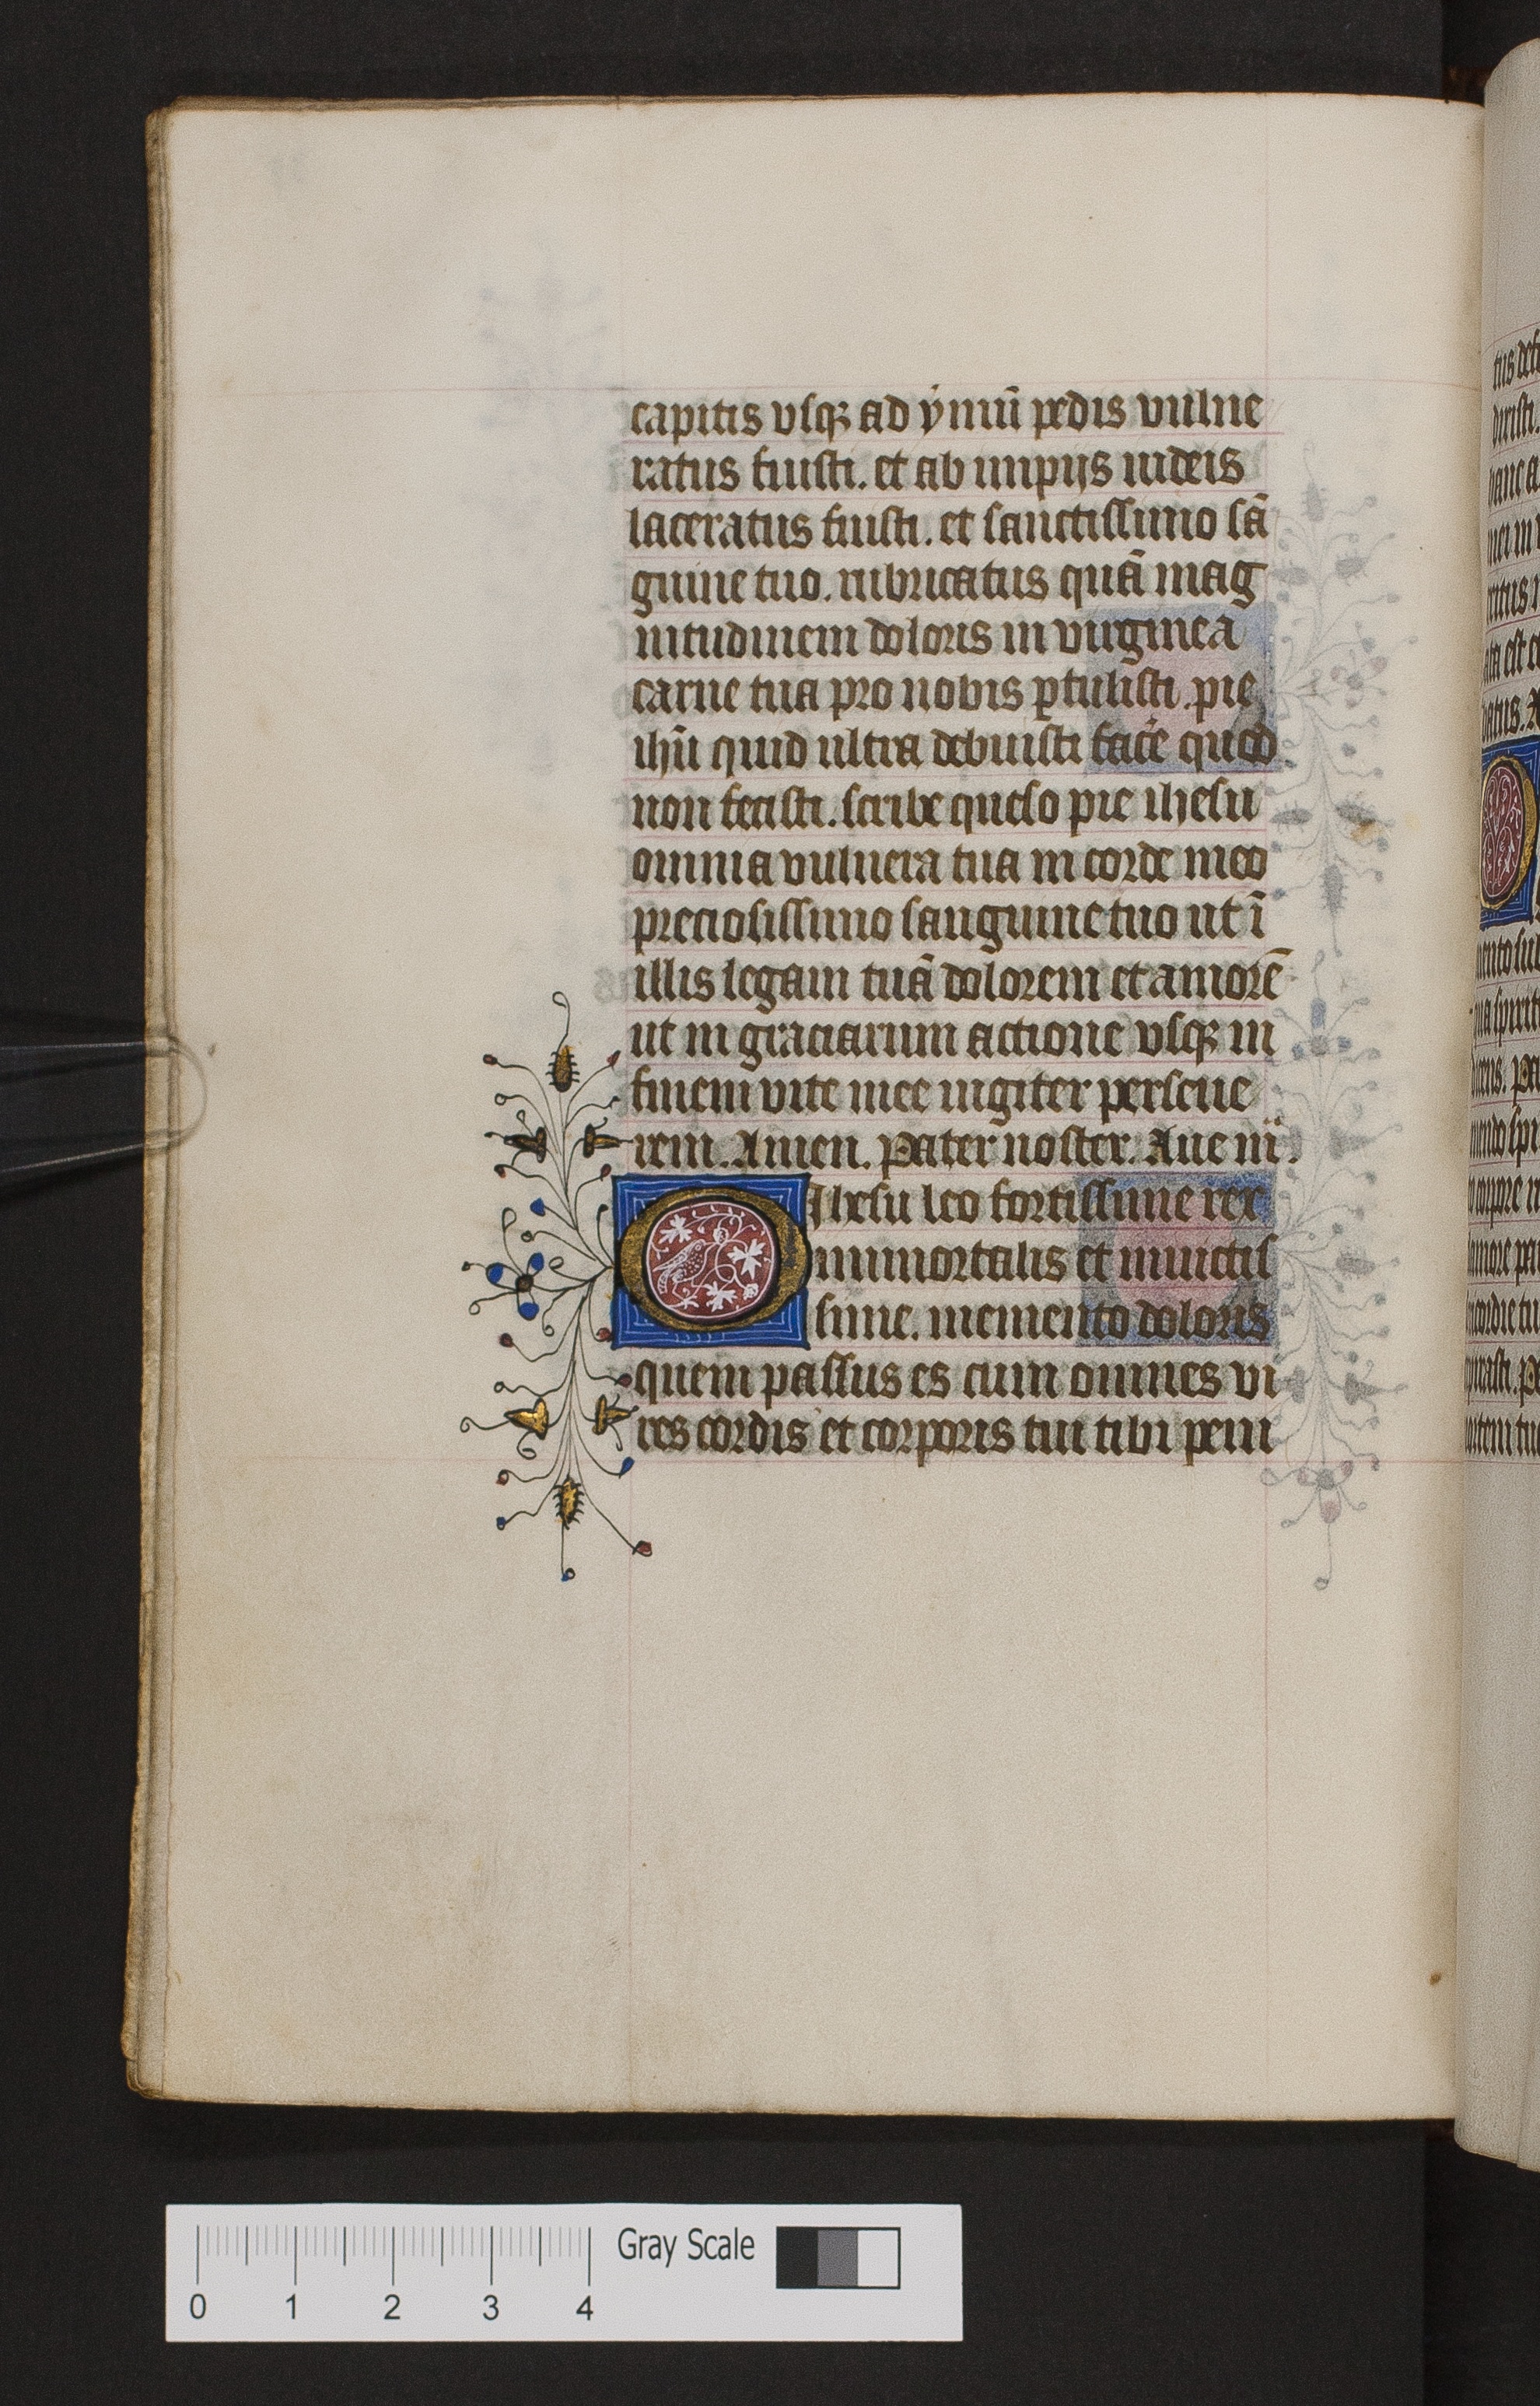 capitis vsqꝫ ad ẏmū pedis vulne
ratus fuisti. et ab impijs iudeis
laceratus fuisti. et sanctissimo sā
guine tuo. rubricatus quā mag
nitudinem doloris in virginea
carne tua pro nobis ꝑtulisti. pie
ihū quid ultra debuisti facē quod
non fecisti. scribe queso pie ihesu
omnia vulnera tua in corde meo
preciosissimo sanguine tuo ut ī
illis legam tuā dolorem et amorē
ut in graciarum actione vsqꝫ in
finem vite mee iugiter perseue
rem. Amen. Pater noster. Aue m̄.
O Ihesu leo fortissime rex
immortalis et inuictis
sime. memento doloris
quem passus es cum omnes vi
res cordis et corporis tui tibi peni
0 1 2 3 4
Gray Scale